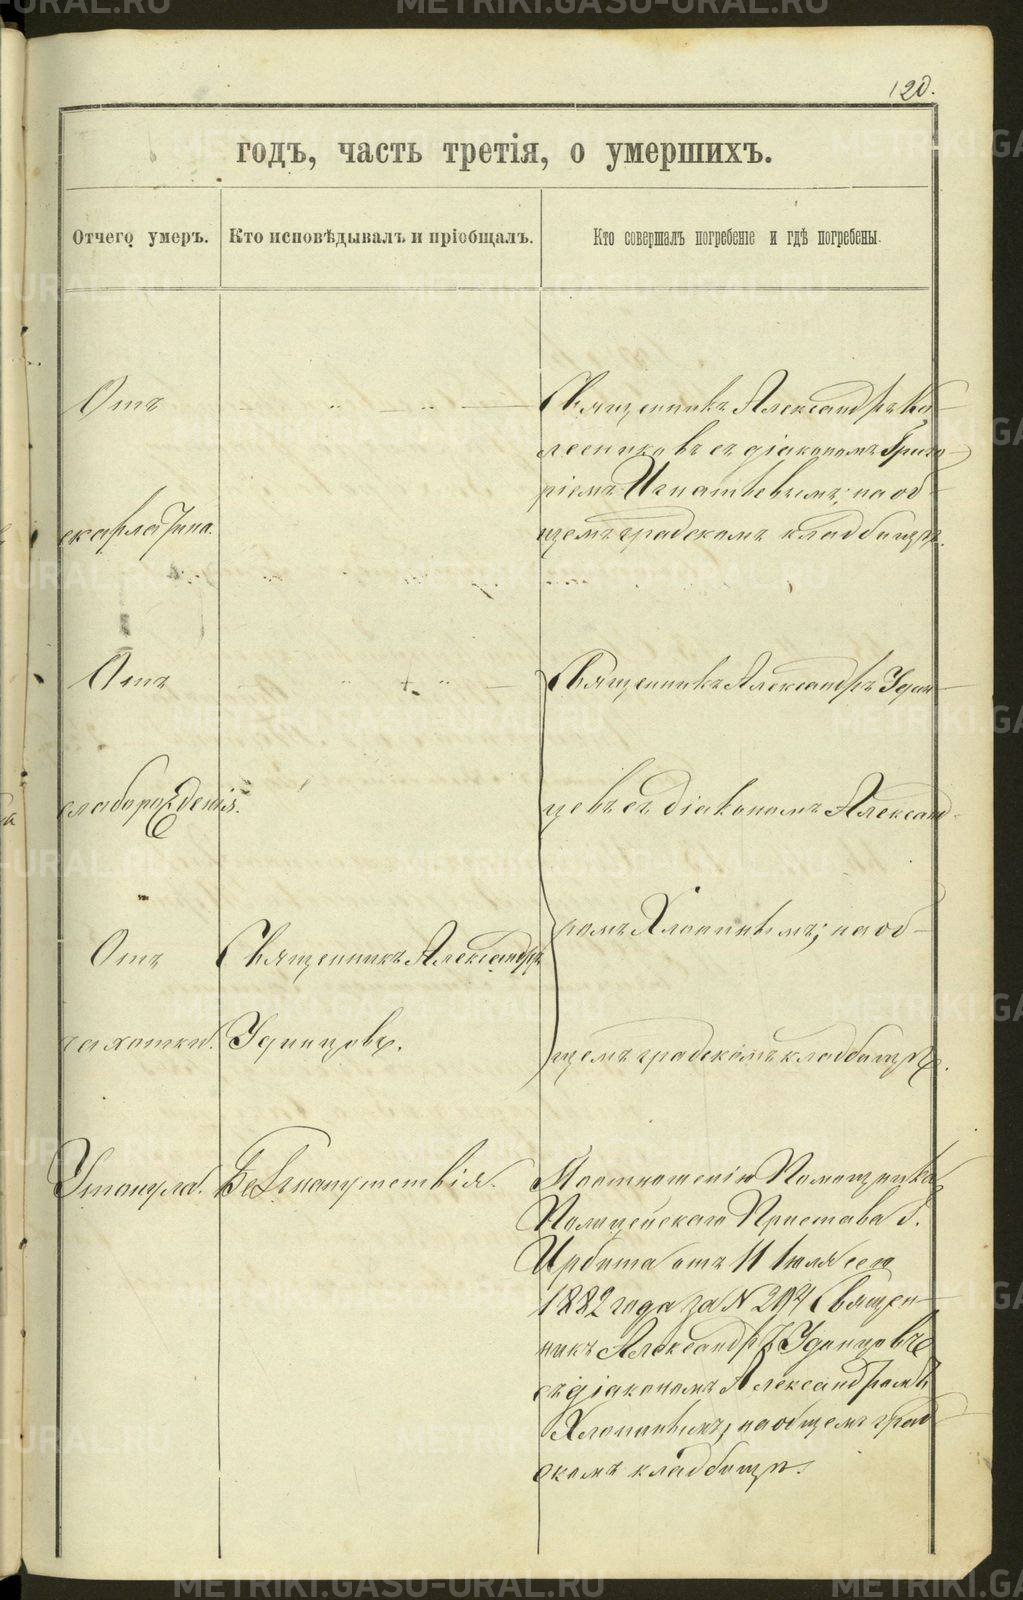 120.
годъ, часть третія, о умершихъ.
Отчего умеръ.
Кто исповѣдывалъ и пріобщалъ.
Кто совершалъ погребеніе и гдѣ погребены.
Отъ
скарлатины.
Священникъ Александръ Ко-
лесниковъ съ діакономъ Григо-
ріемъ Игнатьевымъ; на об-
щемъ градскомъ кладбищѣ.
Отъ
слаборожденія.
Священникъ Александръ Удин-
цевъ съ діакономъ Александ-
ромъ Хлопинымъ; на об-
щемъ градскомъ кладбищѣ.
Отъ
чахотки.
Священникъ Александръ
Удинцовъ.
Утонула.
Безъ напутствія.
По отношенію Помощника
Полицейскаго Пристава г.
Ирбита отъ 11 Іюля сего
1882 года за № 297 Священ-
никъ Александръ Удинцовъ
съ діакономъ Александромъ
Хлопинымъ; на общемъ град-
скомъ кладбищѣ.
METRIKI.GASO-URAL.RU